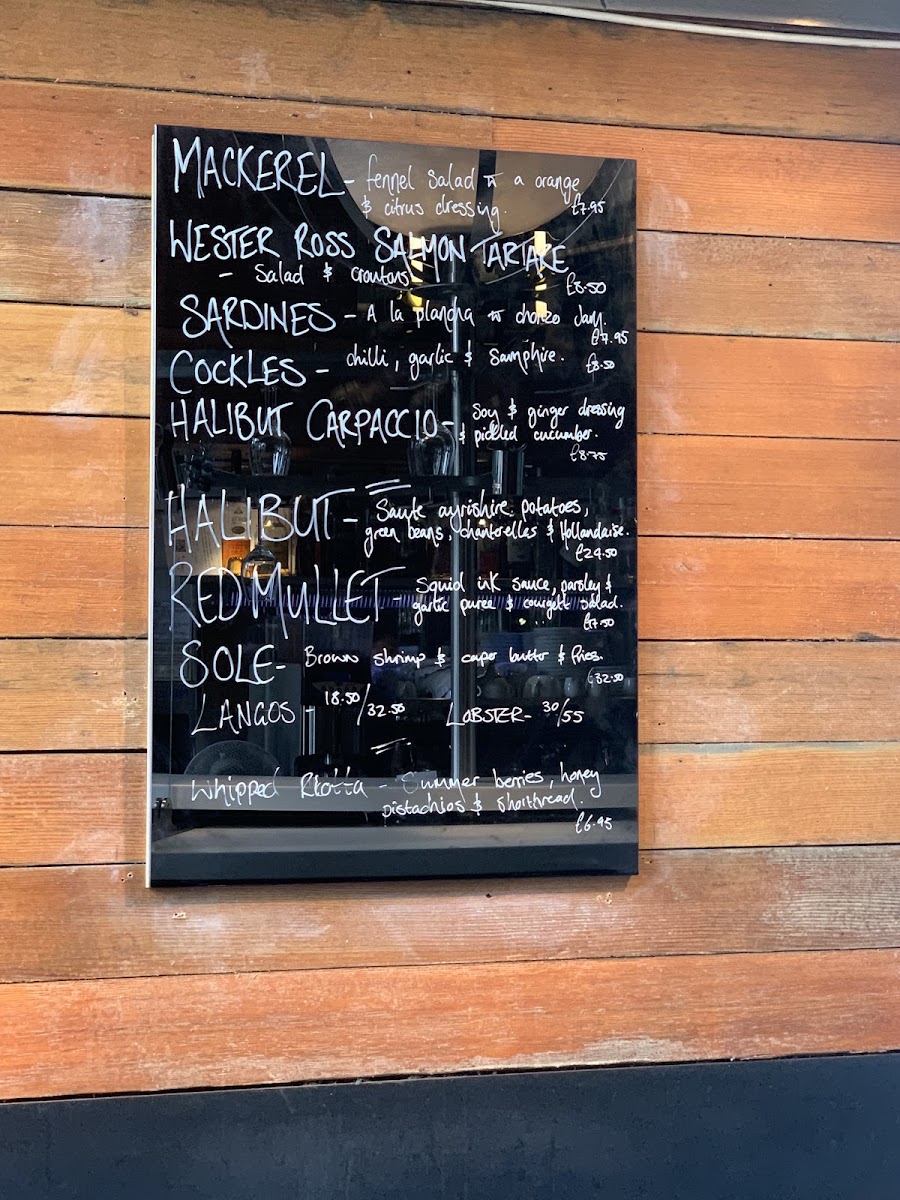 MACKEREL - fennel salad w a orange
& citrus dressing. £7.95
WESTER ROSS SALMON TARTARE
- Salad & croutons £8.50
SARDINES - A la plancha w chorizo Jam.
£7.95
COCKLES - chilli, garlic & Samphire. £8.50
HALIBUT CARPACCIO - Soy & ginger dressing
& pickled cucumber.
£8.75
HALIBUT - Saute ayrishire potatoes,
green beans, chanterelles & Hollandaise.
£24.50
RED MULLET - Squid ink sauce, parsley &
garlic puree & courgette salad.
£17.50
SOLE - Brown shrimp & caper butter & fries.
£32.50
LANGOS - 18.50/32.50 LOBSTER - 30/55
Whipped Ricotta - Summer berries, honey
pistachios & Shortbread.
£6.95